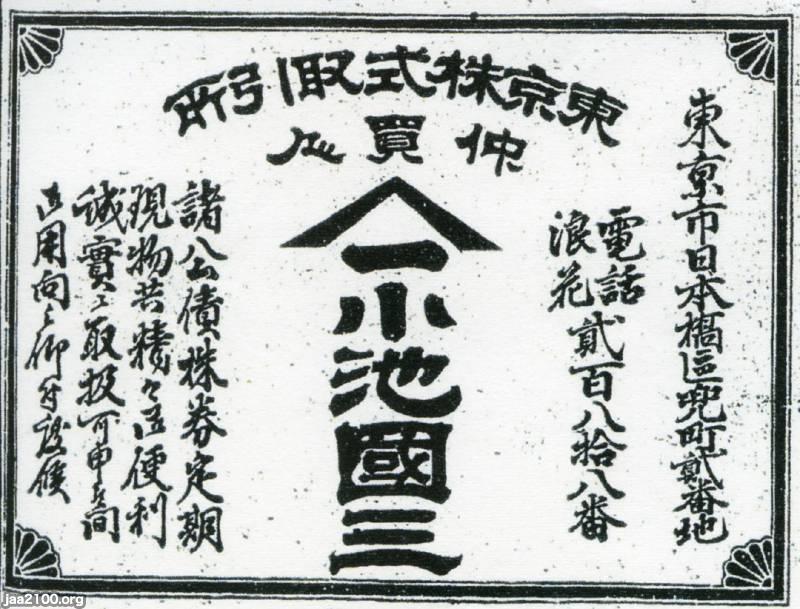 東京株式取引所
仲買人
東京市日本橋區兜町貳番地
電話
浪花
貳百八拾八番
一
小池國三
諸公債株券定期
現物共精々御便利
誠實ニ取扱可申候間
御用向
jaa2100.org